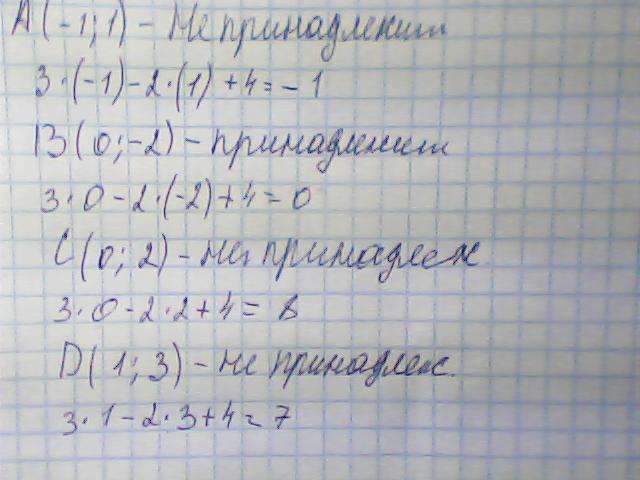 A(-1;1) - Не принадлежит
3·(-1)-2·(1)+4=-1
B(0;-2) - принадлежит
3·0-2·(-2)+4=0
C(0;2) - не принадлеж
3·0-2·2+4=8
D(1;3) - не принадлеж.
3·1-2·3+4=7